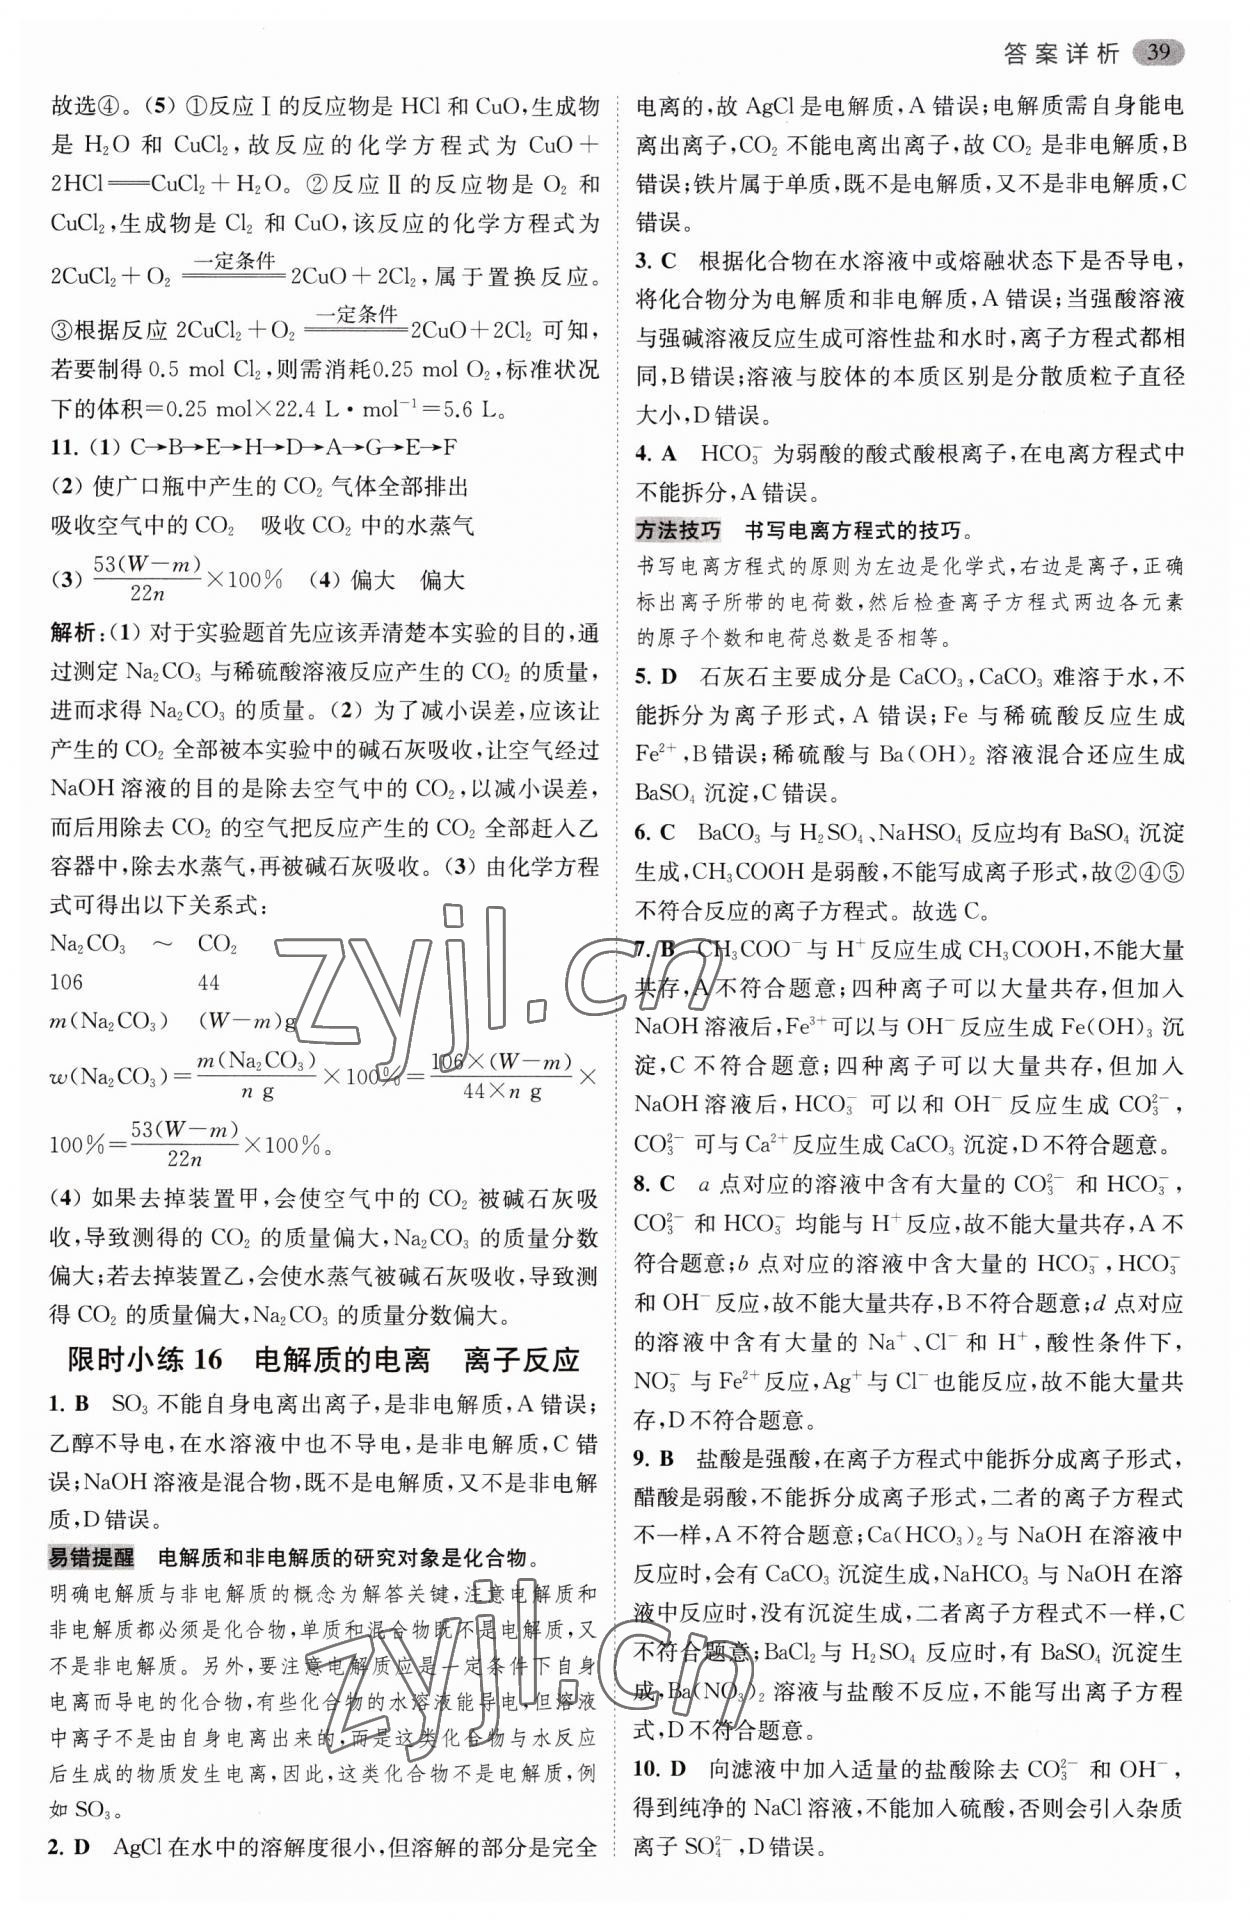 答案详析 39
故选④。(5) ①反应Ⅰ的反应物是 HCl 和 CuO,生成物
是 H₂O 和 CuCl₂,故反应的化学方程式为 CuO＋
2HCl══CuCl₂＋H₂O。②反应Ⅱ的反应物是 O₂ 和
CuCl₂,生成物是 Cl₂ 和 CuO,该反应的化学方程式为
2CuCl₂＋O₂ ══一定条件══ 2CuO＋2Cl₂,属于置换反应。
③根据反应 2CuCl₂＋O₂ ══一定条件══ 2CuO＋2Cl₂ 可知,
若要制得 0.5 mol Cl₂,则需消耗0.25 mol O₂,标准状况
下的体积＝0.25 mol×22.4 L·mol⁻¹＝5.6 L。
11. (1) C→B→E→H→D→A→G→E→F
(2) 使广口瓶中产生的 CO₂ 气体全部排出
吸收空气中的 CO₂ 吸收 CO₂ 中的水蒸气
(3) 53(W－m)/22n ×100% (4) 偏大 偏大
解析:(1) 对于实验题首先应该弄清楚本实验的目的,通
过测定 Na₂CO₃ 与稀硫酸溶液反应产生的 CO₂ 的质量,
进而求得 Na₂CO₃ 的质量。(2) 为了减小误差,应该让
产生的 CO₂ 全部被本实验中的碱石灰吸收,让空气经过
NaOH 溶液的目的是除去空气中的 CO₂,以减小误差,
而后用除去 CO₂ 的空气把反应产生的 CO₂ 全部赶入乙
容器中,除去水蒸气,再被碱石灰吸收。(3) 由化学方程
式可得出以下关系式:
Na₂CO₃ ～ CO₂
106 44
m(Na₂CO₃) (W－m)g
w(Na₂CO₃)＝m(Na₂CO₃)/n g ×100%＝106×(W－m)/44×n g ×
100%＝53(W－m)/22n ×100%。
(4) 如果去掉装置甲,会使空气中的 CO₂ 被碱石灰吸
收,导致测得的 CO₂ 的质量偏大,Na₂CO₃ 的质量分数
偏大;若去掉装置乙,会使水蒸气被碱石灰吸收,导致测
得 CO₂ 的质量偏大,Na₂CO₃ 的质量分数偏大。
限时小练 16 电解质的电离 离子反应
1. B SO₃ 不能自身电离出离子,是非电解质,A 错误;
乙醇不导电,在水溶液中也不导电,是非电解质,C 错
误;NaOH 溶液是混合物,既不是电解质,又不是非电解
质,D 错误。
易错提醒 电解质和非电解质的研究对象是化合物。
明确电解质与非电解质的概念为解答关键,注意电解质和
非电解质都必须是化合物,单质和混合物既不是电解质,又
不是非电解质。另外,要注意电解质应是一定条件下自身
电离而导电的化合物,有些化合物的水溶液能导电,但溶液
中离子不是由自身电离出来的,而是这类化合物与水反应
后生成的物质发生电离,因此,这类化合物不是电解质,例
如 SO₃。
2. D AgCl 在水中的溶解度很小,但溶解的部分是完全
电离的,故 AgCl 是电解质,A 错误;电解质需自身能电
离出离子,CO₂ 不能电离出离子,故 CO₂ 是非电解质,B
错误;铁片属于单质,既不是电解质,又不是非电解质,C
错误。
3. C 根据化合物在水溶液中或熔融状态下是否导电,
将化合物分为电解质和非电解质,A 错误;当强酸溶液
与强碱溶液反应生成可溶性盐和水时,离子方程式都相
同,B 错误;溶液与胶体的本质区别是分散质粒子直径
大小,D 错误。
4. A HCO₃⁻ 为弱酸的酸式酸根离子,在电离方程式中
不能拆分,A 错误。
方法技巧 书写电离方程式的技巧。
书写电离方程式的原则为左边是化学式,右边是离子,正确
标出离子所带的电荷数,然后检查离子方程式两边各元素
的原子个数和电荷总数是否相等。
5. D 石灰石主要成分是 CaCO₃,CaCO₃ 难溶于水,不
能拆分为离子形式,A 错误;Fe 与稀硫酸反应生成
Fe²⁺,B错误;稀硫酸与 Ba(OH)₂ 溶液混合还应生成
BaSO₄ 沉淀,C 错误。
6. C BaCO₃ 与 H₂SO₄、NaHSO₄ 反应均有 BaSO₄ 沉淀
生成,CH₃COOH 是弱酸,不能写成离子形式,故②④⑤
不符合反应的离子方程式。故选 C。
7. B CH₃COO⁻ 与 H⁺ 反应生成 CH₃COOH,不能大量
共存,A 不符合题意;四种离子可以大量共存,但加入
NaOH 溶液后,Fe³⁺ 可以与 OH⁻ 反应生成 Fe(OH)₃ 沉
淀,C 不符合题意;四种离子可以大量共存,但加入
NaOH 溶液后,HCO₃⁻ 可以和 OH⁻ 反应生成 CO₃²⁻,
CO₃²⁻ 可与 Ca²⁺ 反应生成 CaCO₃ 沉淀,D 不符合题意。
8. C a 点对应的溶液中含有大量的 CO₃²⁻ 和 HCO₃⁻,
CO₃²⁻ 和 HCO₃⁻ 均能与 H⁺ 反应,故不能大量共存,A 不
符合题意;b 点对应的溶液中含大量的 HCO₃⁻,HCO₃⁻
和 OH⁻ 反应,故不能大量共存,B不符合题意;d 点对应
的溶液中含有大量的 Na⁺、Cl⁻ 和 H⁺,酸性条件下,
NO₃⁻ 与 Fe²⁺ 反应,Ag⁺ 与 Cl⁻ 也能反应,故不能大量共
存,D 不符合题意。
9. B 盐酸是强酸,在离子方程式中能拆分成离子形式,
醋酸是弱酸,不能拆分成离子形式,二者的离子方程式
不一样,A 不符合题意;Ca(HCO₃)₂ 与 NaOH 在溶液中
反应时,会有 CaCO₃ 沉淀生成,NaHCO₃ 与 NaOH 在溶
液中反应时,没有沉淀生成,二者离子方程式不一样,C
不符合题意;BaCl₂ 与 H₂SO₄ 反应时,有 BaSO₄ 沉淀生
成,Ba(NO₃)₂ 溶液与盐酸不反应,不能写出离子方程
式,D 不符合题意。
10. D 向滤液中加入适量的盐酸除去 CO₃²⁻ 和 OH⁻,
得到纯净的 NaCl 溶液,不能加入硫酸,否则会引入杂质
离子 SO₄²⁻,D 错误。
zyjl.cn
zyjl.cn